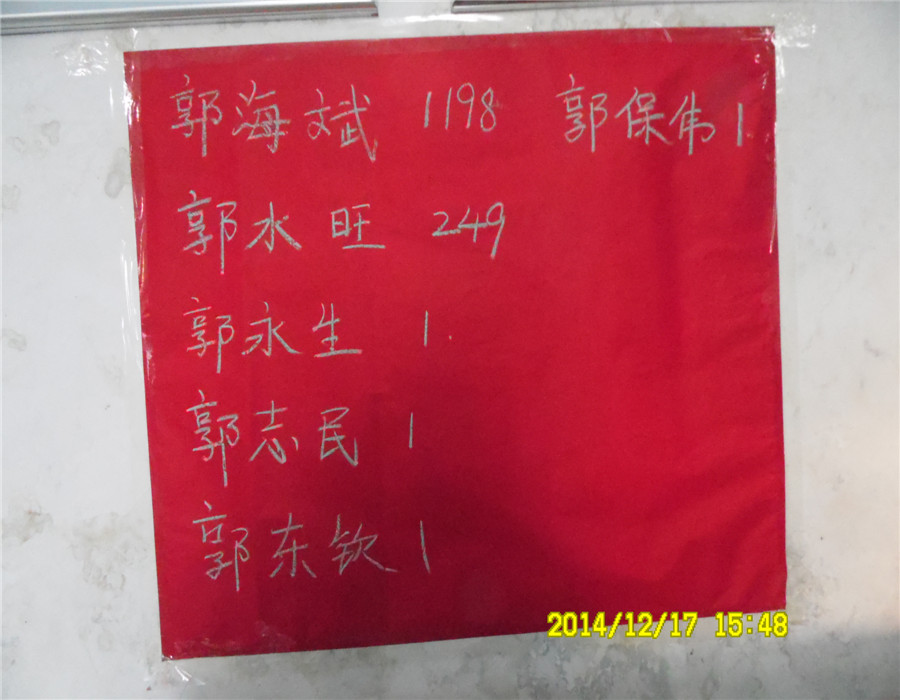 郭海斌 1198 郭保伟 1
郭水旺 249
郭永生 1.
郭志民 1
郭东钦 1
2014/12/17 15:48